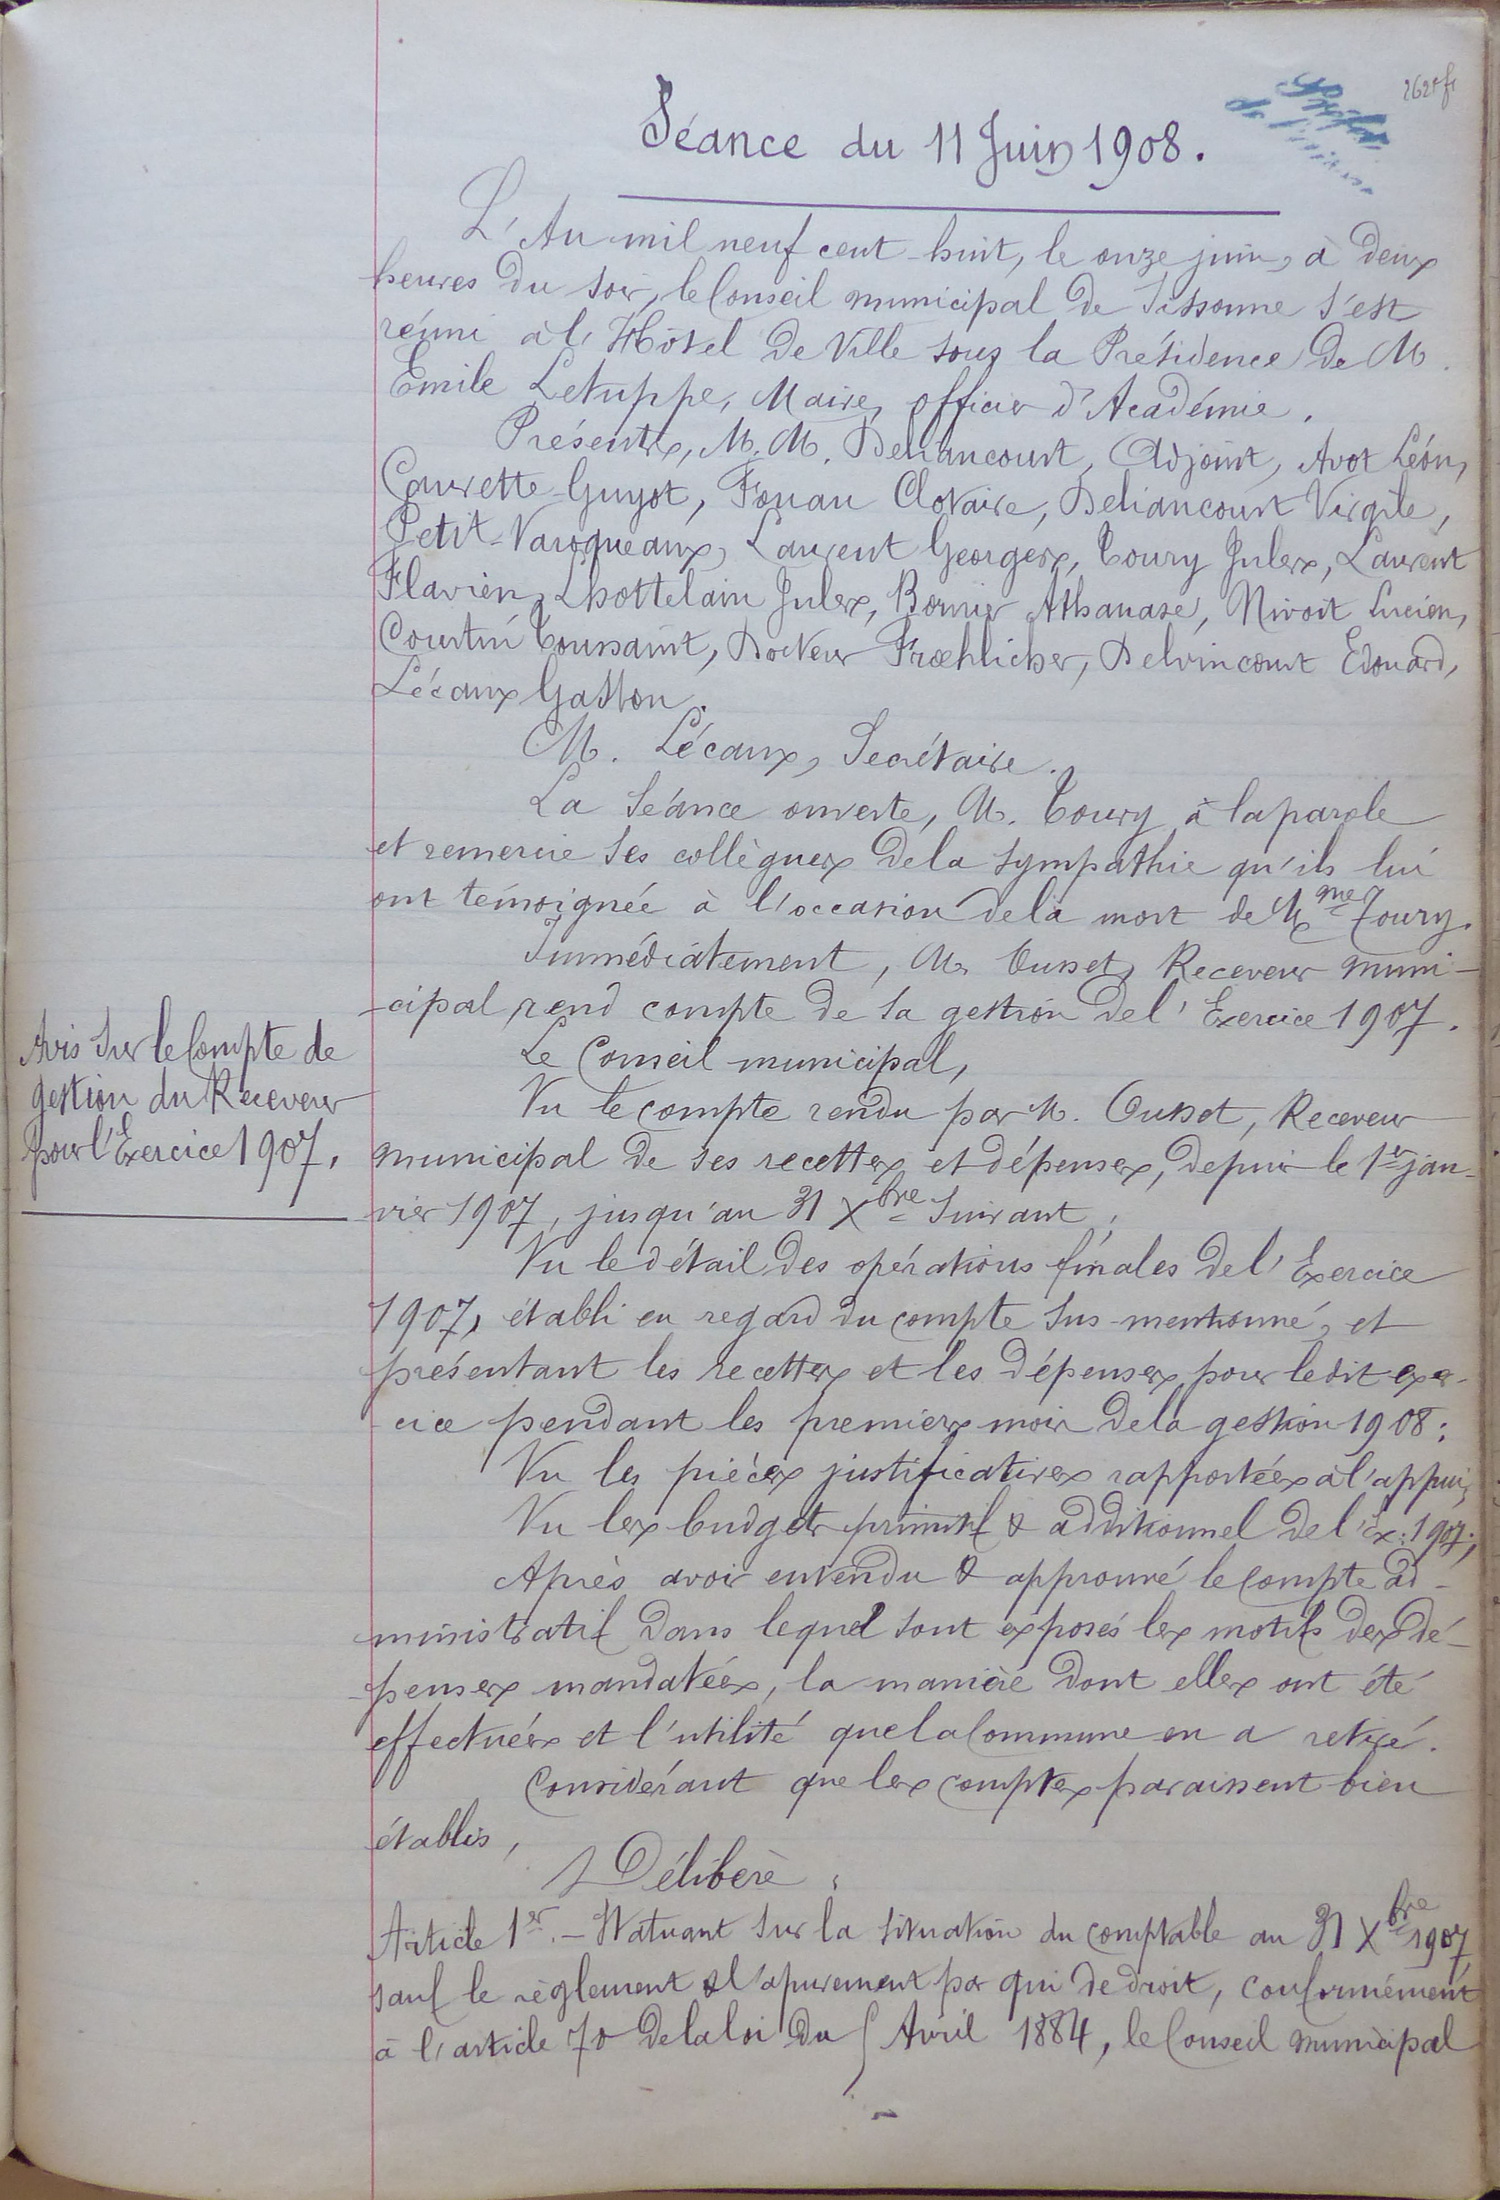 Séance du 11 Juin 1908.
L'An mil neuf cent huit, le onze juin, à deux
heures du soir, le Conseil municipal de Sissonne s'est
réuni à l'Hôtel de Ville sous la Présidence de M.
Emile Letuppe, Maire, officier d'Académie.
Présents, M.M. Deliancourt, Adjoint, Avot Léon,
Caurette-Guyot, Fouan Clotaire, Deliancourt Virgile,
Petit-Varoqueaux, Laurent Georges, Toury Jules, Laurent
Flavien, Lhottelain Jules, Bornier Athanase, Nivoit Lucien,
Courtin Toussaint, Docteur Frœhlicher, Delvincourt Edouard,
Lécaux Gaston.
M. Lécaux, Secrétaire.
La Séance ouverte, M. Toury a la parole
et remercie ses collègues de la sympathie qu'ils lui
ont témoignée à l'occasion de la mort de Mme Toury.
Immédiatement, M. Ousset, Receveur muni-
-cipal rend compte de sa gestion de l'Exercice 1907.
Le Conseil municipal,
Avis sur le Compte de
gestion du Receveur
pour l'Exercice 1907.
Vu le compte rendu par M. Ousset, Receveur
municipal de ses recettes et dépenses, depuis le 1er jan-
vier 1907, jusqu'au 31 Xbre suivant;
Vu le détail des opérations finales de l'Exercice
1907, établi en regard du compte sus-mentionné, et
présentant les recettes et les dépenses pour le dit exer-
-cice pendant les premiers mois de la gestion 1908;
Vu les pièces justificatives rapportées à l'appui;
Vu les budgets primitif & additionnel de l'Ex: 1907;
Après avoir entendu & approuvé le Compte ad-
ministratif dans lequel sont exposés les motifs des dé-
-penses mandatées, la manière dont elles ont été
effectuées et l'utilité que la Commune en a retiré.
Considérant que les comptes paraissent bien
établis,
Délibère:
Article 1er. - Statuant sur la situation du comptable au 31 Xbre 1907
sauf le règlement & l'apurement par qui de droit, conformément
à l'article 70 de la loi du 5 Avril 1884, le Conseil municipal